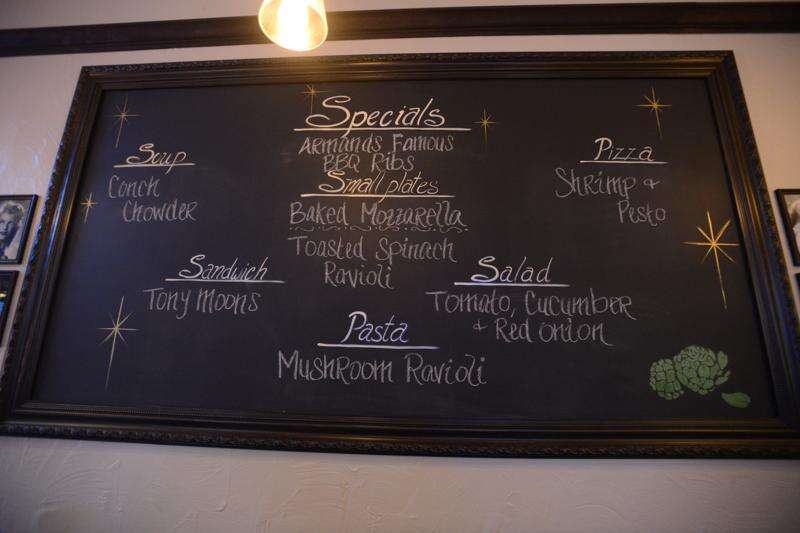 Specials
Armands Famous
BBQ Ribs
Soup
Conch
Chowder
Small plates
Baked Mozzarella
Toasted Spinach
Ravioli
Pizza
Shrimp +
Pesto
Sandwich
Tony Moons
Salad
Tomato, Cucumber
+ Red onion
Pasta
Mushroom Ravioli